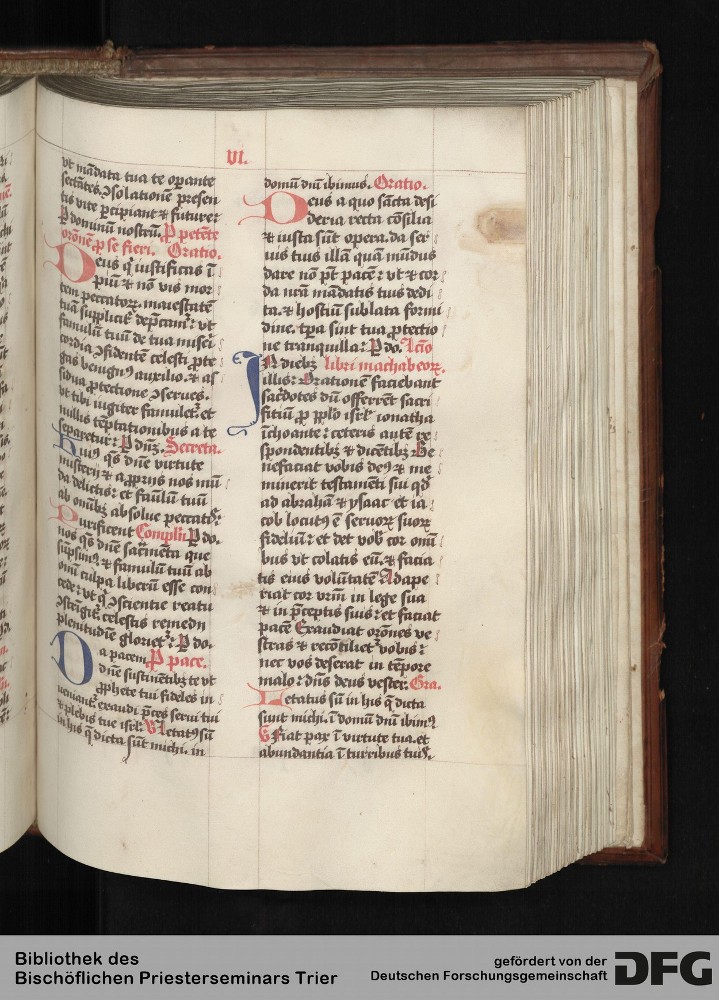 VI.
vt mādata tua te oꝑante
sectātes, ꝯsolationē presen
tis vite ꝑcipiant ⁊ future:
P dominū nostrū. P petēte
orōnē ꝓ se fieri. Oratio.
Deus q̇ iustificas ī
piū ⁊ nō vis mor
tem peccatoꝝ. maiestatē
tuā supplicit᷑ dep̄camꝰ: vt
famulū tuū de tua miseri
cordia ꝯfidentē celesti ꝓte
gas benignꝰ auxilio. ⁊ as
sidua ꝓtectione ꝯserues.
vt tibi iugiter famulet᷑. et
nullis tēptationibus a te
separetur: P dnm̄. Secreta.
Huiꝰ q̄s dn̄e virtute
misterij ⁊ a ꝓprijs nos mū
da delictis: et fam̄lū tuū
ab omībꝫ absolue peccatis:
Purificent Complēn. P do.
nos q̄s dn̄e sac̄mēta que
sūpsimꝰ. ⁊ famulū tuū ab
omī culpa liberū esse con
cede: vt q̇ ꝯscientie reatu
ꝯstrīgit᷑. celestis remedij
plenitudīe gloriet᷑: P do.
Da pacem P pace.
dn̄e sustinētibꝫ te vt
ꝓphete tui fideles in
ueniant᷑. exaudi p̄ces serui tui
⁊ plebis tue isrl: R Letatꝰ sū
in his q̄ dicta sūt michi. in
domū dnī ibimus. Oratio.
Deus a quo sācta desi
deria recta cōsilia
⁊ iusta sūt opera. da ser
uis tuis illā quā mūdus
dare nō pt̄ pacē: vt ⁊ cor
da nrā mādatis tuis dedi
ta. ⁊ hostiū sublata formi
dine. tp̄a sint tua ꝓtectio
ne tranquilla: P do. Lc̄io
In diebꝫ libri machabeoꝝ.
illis: Orationē faciebant
sac̄dotes dū offerrēt sacri
fitiū ꝓ pplo isrl. ionatha
īchoante: ceteris autē re
spondentibꝫ ⁊ dicētibꝫ. Be
nefaciat vobis deꝰ ⁊ me
minerit testamēti sui qd̄
ad abrahā ⁊ ysaac et ia
cob locutꝰ ē seruoꝝ suoꝝ
fideliū: et det vob̄ cor omī
bus vt colatis eū. ⁊ facia
tis eius volūtatē Adape
riat cor vrm̄ in lege sua
⁊ in p̄ceptis suis: et faciat
pacē Exaudiat orōnes ve
stras ⁊ recōciliet᷑ vobis:
nec vos deserat in tēpore
malo: dn̄s deus vester. Gra.
Letatus sū in his q̄ dicta
sunt michi. ī domū dnī ibimꝰ
V Fiat pax ī virtute tua. et
abundantia ī turribus tuis.
Bibliothek des
Bischöflichen Priesterseminars Trier
gefördert von der
Deutschen Forschungsgemeinschaft
DFG